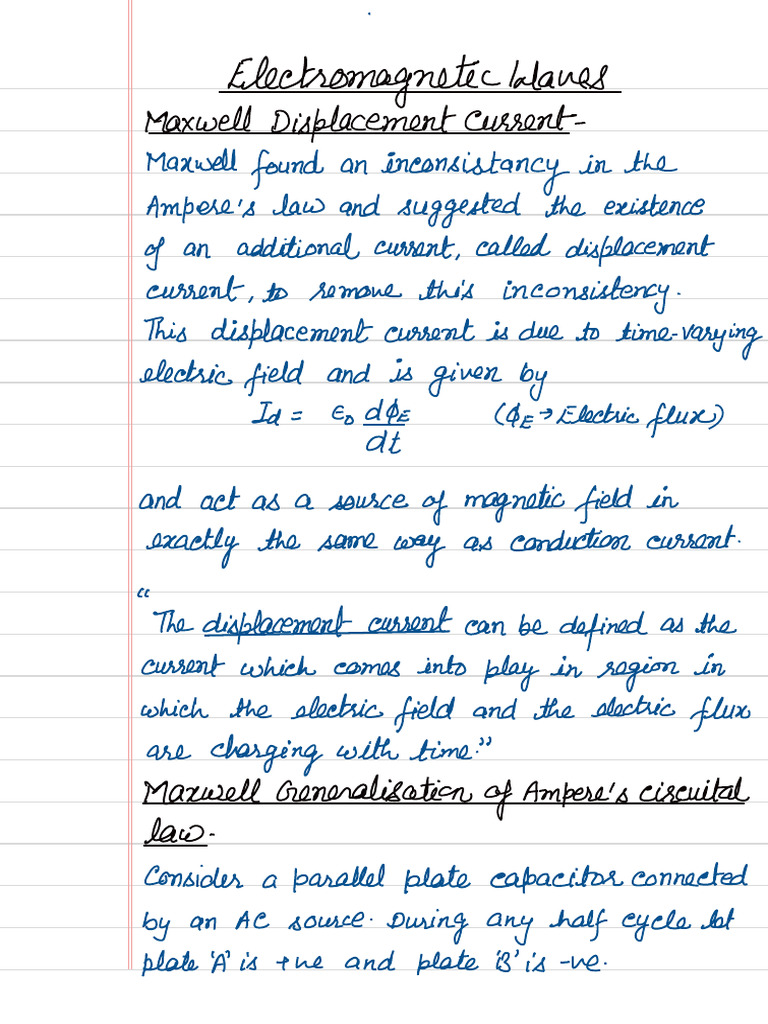 Electromagnetic Waves
Maxwell Displacement Current-
Maxwell found an inconsistancy in the
Ampere's law and suggested the existence
of an additional current, called displacement
current, to remove this inconsistency.
This displacement current is due to time-varying
electric field and is given by
Id = ε₀ dϕE/dt (ϕE → Electric flux)
and act as a source of magnetic field in
exactly the same way as conduction current.
"
The displacement current can be defined as the
current which comes into play in region in
which the electric field and the electric flux
are charging with time."
Maxwell Generalisation of Ampere's circuital
law-
Consider a parallel plate capacitor connected
by an AC source. During any half cycle let
plate 'A' is +ve and plate 'B' is -ve.